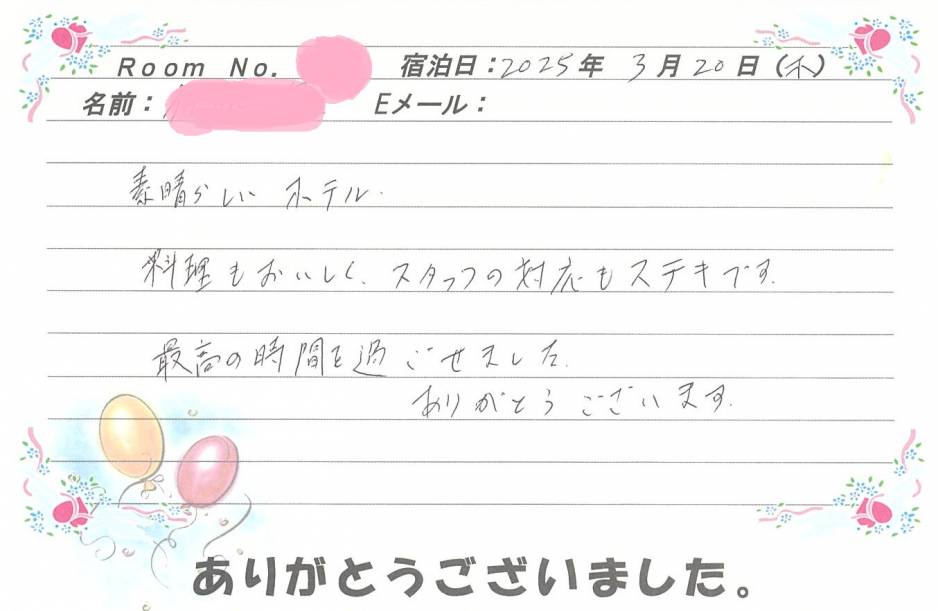 Room No. 宿泊日：2025年 3月 20日（木）
名前： Eメール：
素晴らしい ホテル.
料理もおいしく、スタッフの対応もステキです.
最高の時間を過ごせました.
ありがとうございます.
ありがとうございました。